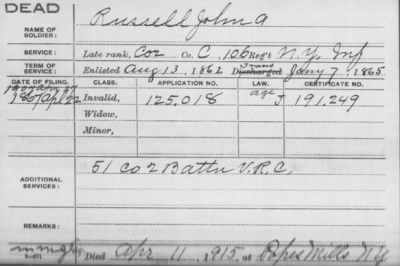 DEAD
NAME OF SOLDIER: Russell John A
SERVICE: Late rank, Cor Co. C, 106 Reg't N.Y. Inf
TERM OF SERVICE: Enlisted Aug 13, 1862 Discharged Jany 7, 1865
Trans
DATE OF FILING. CLASS. APPLICATION NO. LAW. CERTIFICATE NO.
age
1867 Apl 22 Invalid, 125.018 J 191.249
Widow,
Minor,
ADDITIONAL SERVICES: 51 Co 2 Battn V.R.C.
REMARKS:
Died Apr 11, 1915, at Popes Mills N.Y